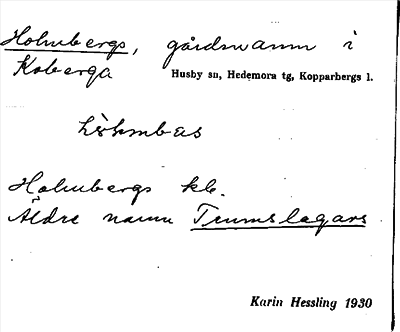 Holmbergs, gårdsnamn i
Koberga
Husby sn, Hedemora tg, Kopparbergs l.
Holmbergs kb.
Äldre namn Trumslagars
Karin Hessling 1930